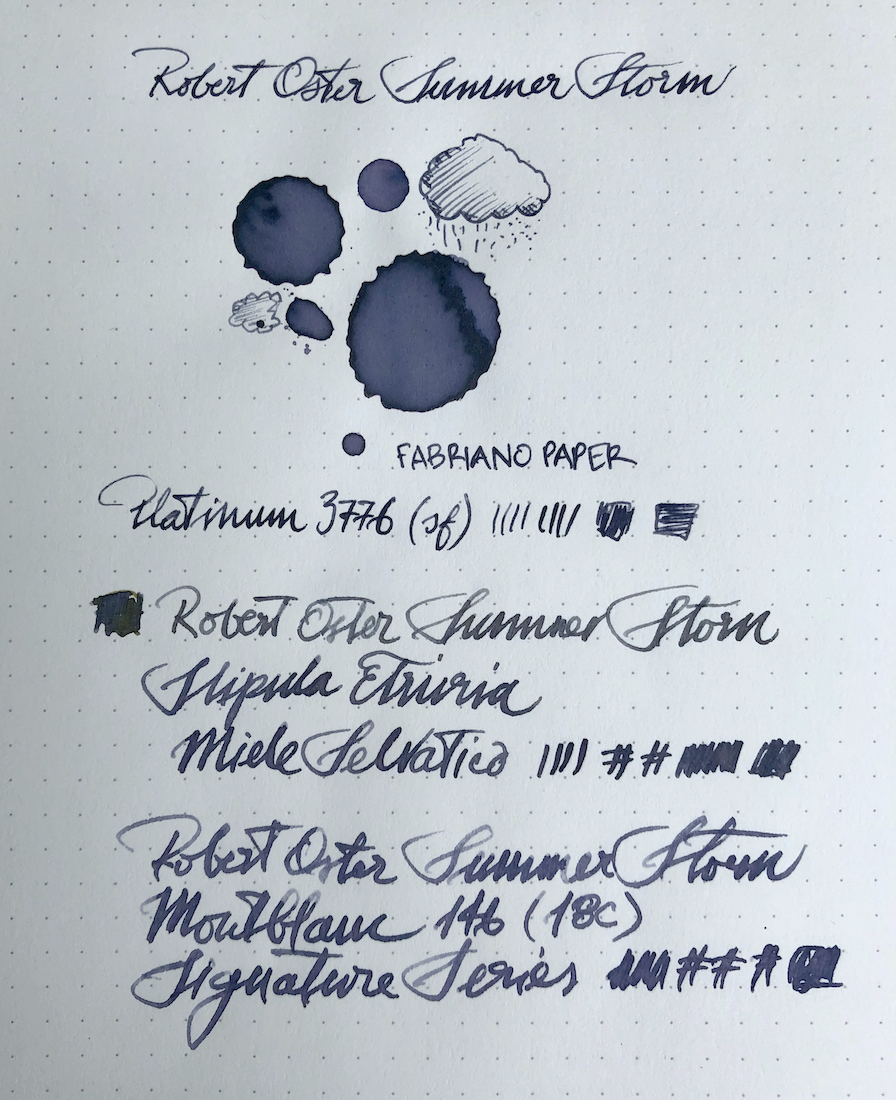 Robert Oster Summer Storm
FABRIANO PAPER
Platinum 3776 (sf)
Robert Oster Summer Storm
Stipula Etruria
Miele Selvatico # #
Robert Oster Summer Storm
Montblanc 146 (18C)
Signature Series # # #